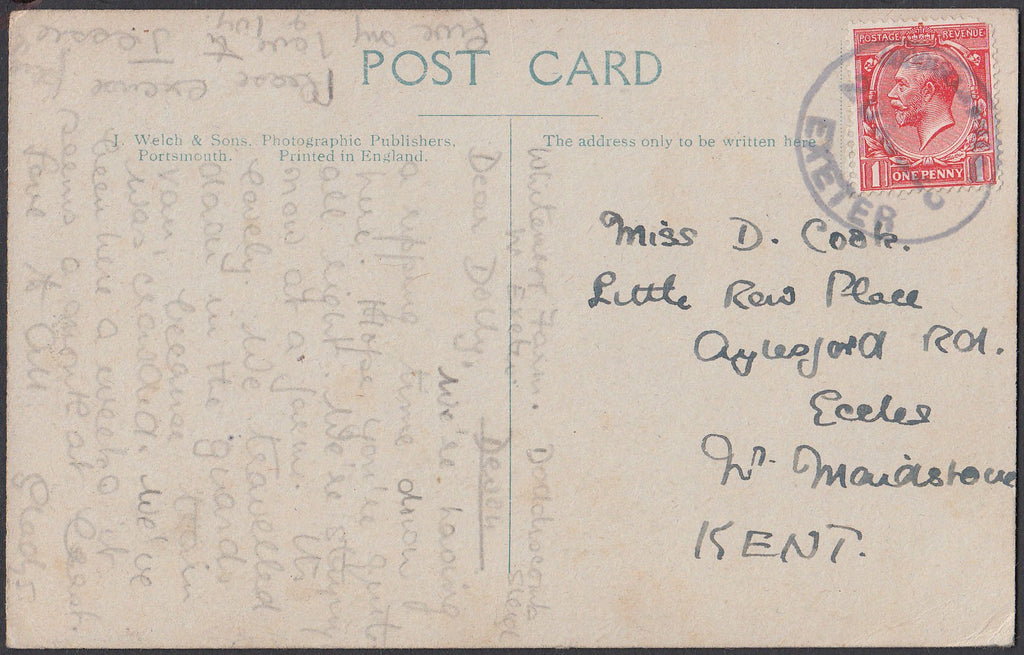 POST CARD
J. Welch & Sons, Photographic Publishers,
Portsmouth. Printed in England.
The address only to be written here
POSTAGE REVENUE
1 ONE PENNY 1
EXETER
Miss D. Cook.
Little Row Place
Aylesford Rd.
Eccles
Nr. Maidstone
KENT.
Whitemoor Farm. Doddiscomb
Nr Exeter
Devon
Dear Dolly,
We're having
a ripping time down
here. Hope you're quite
all right. We're staying
now at a farm. It's
lovely. We travelled
down in the guards
van, because train
was crowded. We've
been here a week & it
seems a month at least.
Love to All
Please excuse